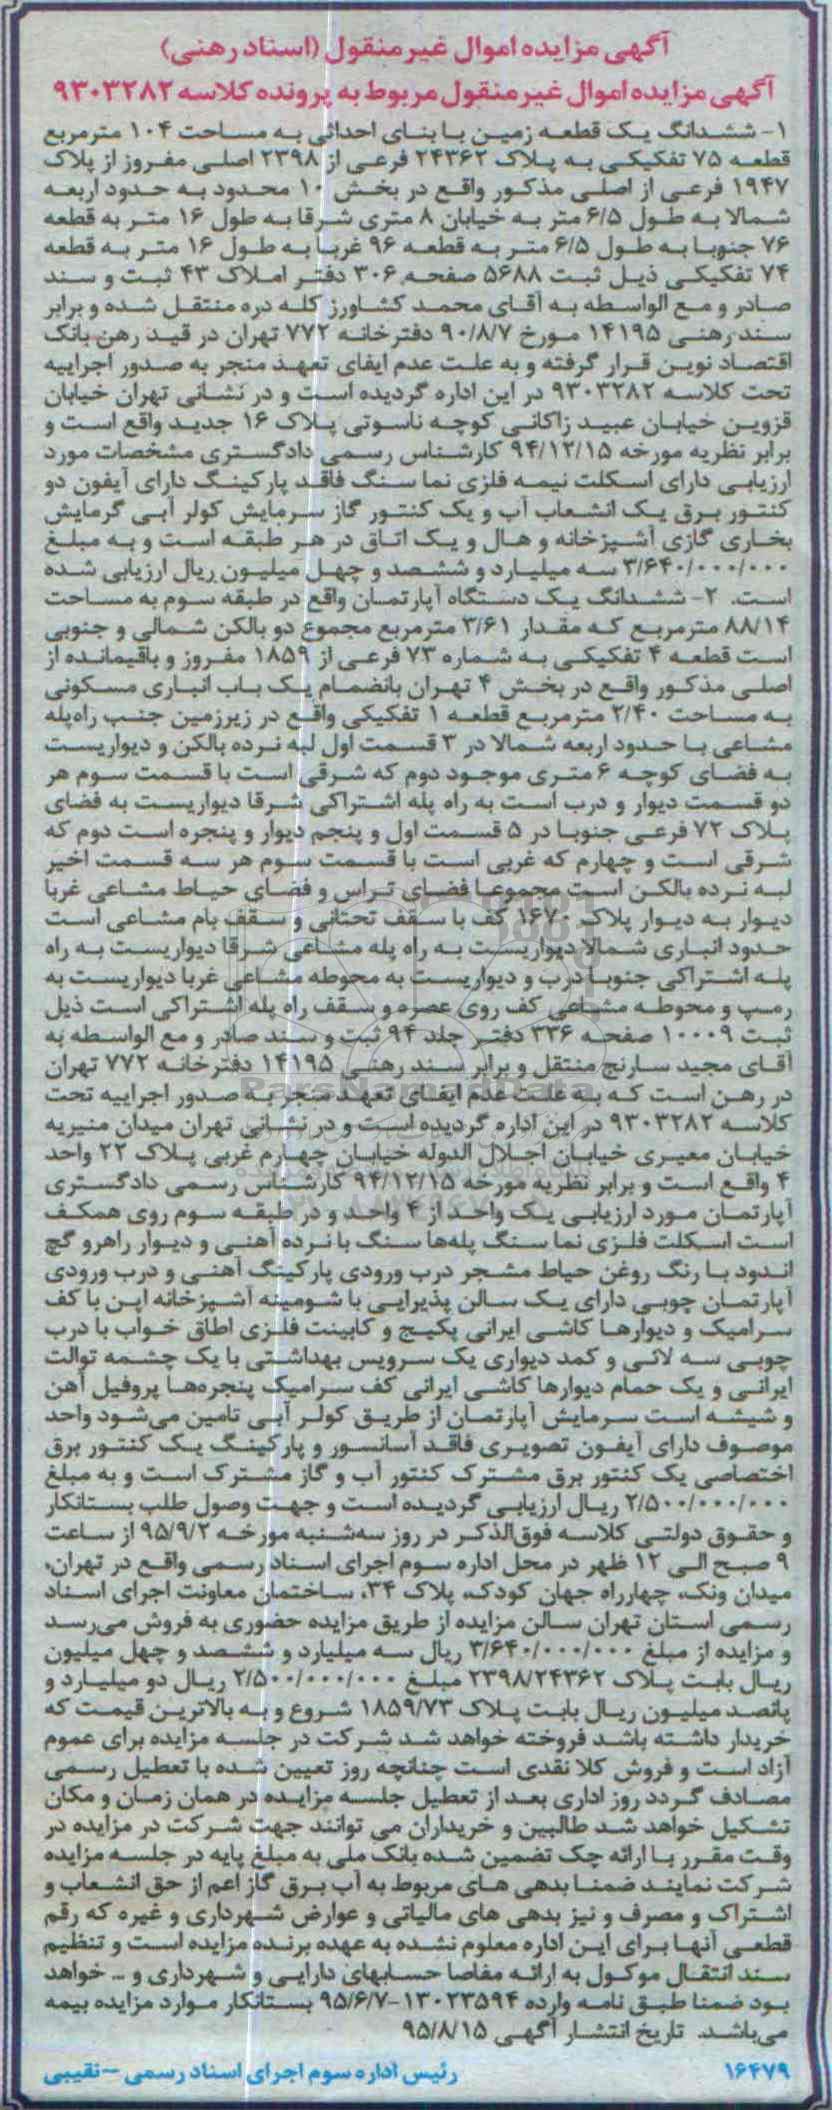 آگهی مزایده اموال غیرمنقول (اسناد رهنی)
آگهی مزایده اموال غیرمنقول مربوط به پرونده کلاسه ۹۳۰۳۲۸۲
۱- ششدانگ یک قطعه زمین با بنای احداثی به مساحت ۱۰۴ مترمربع
قطعه ۷۵ تفکیکی به پلاک ۲۴۳۶۲ فرعی از ۲۳۹۸ اصلی مفروز از پلاک
۱۹۴۷ فرعی از اصلی مذکور واقع در بخش ۱۰ محدود به حدود اربعه
شمالا به طول ۶/۵ متر به خیابان ۸ متری شرقا به طول ۱۶ متر به قطعه
۷۶ جنوبا به طول ۶/۵ متر به قطعه ۹۶ غربا به طول ۱۶ متر به قطعه
۷۴ تفکیکی ذیل ثبت ۵۶۸۸ صفحه ۳۰۶ دفتر املاک ۴۳ ثبت و سند
صادر و مع الواسطه به آقای محمد کشاورز کله دره منتقل شده و برابر
سند رهنی ۱۴۱۹۵ مورخ ۹۰/۸/۷ دفترخانه ۷۷۲ تهران در قید رهن بانک
اقتصاد نوین قرار گرفته و به علت عدم ایفای تعهد منجر به صدور اجراییه
تحت کلاسه ۹۳۰۳۲۸۲ در این اداره گردیده است و در نشانی تهران خیابان
قزوین خیابان عبید زاکانی کوچه ناسوتی پلاک ۱۶ جدید واقع است و
برابر نظریه مورخه ۹۴/۱۲/۱۵ کارشناس رسمی دادگستری مشخصات مورد
ارزیابی دارای اسکلت نیمه فلزی نما سنگ فاقد پارکینگ دارای آیفون دو
کنتور برق یک انشعاب آب و یک کنتور گاز سرمایش کولر آبی گرمایش
بخاری گازی آشپزخانه و هال و یک اتاق در هر طبقه است و به مبلغ
۳/۶۴۰/۰۰۰/۰۰۰ سه میلیارد و ششصد و چهل میلیون ریال ارزیابی شده
است. ۲- ششدانگ یک دستگاه آپارتمان واقع در طبقه سوم به مساحت
۸۸/۱۴ مترمربع که مقدار ۳/۶۱ مترمربع مجموع دو بالکن شمالی و جنوبی
است قطعه ۴ تفکیکی به شماره ۷۳ فرعی از ۱۸۵۹ مفروز و باقیمانده از
اصلی مذکور واقع در بخش ۴ تهران بانضمام یک باب انباری مسکونی
به مساحت ۲/۴۰ مترمربع قطعه ۱ تفکیکی واقع در زیرزمین جنب راه‌پله
مشاعی با حدود اربعه شمالا در ۳ قسمت اول لبه نرده بالکن و دیواریست
به فضای کوچه ۶ متری موجود دوم که شرقی است با قسمت سوم هر
دو قسمت دیوار و درب است به راه پله اشتراکی شرقا دیواریست به فضای
پلاک ۷۲ فرعی جنوبا در ۵ قسمت اول و پنجم دیوار و پنجره است دوم که
شرقی است و چهارم که غربی است با قسمت سوم هر سه قسمت اخیر
لبه نرده بالکن است مجموعا فضای تراس و فضای حیاط مشاعی غربا
دیوار به دیوار پلاک ۱۶۷۰ کف با سقف تحتانی و سقف بام مشاعی است
حدود انباری شمالا دیواریست به راه پله مشاعی شرقا دیواریست به راه
پله اشتراکی جنوبا درب و دیواریست به محوطه مشاعی غربا دیواریست به
رمپ و محوطه مشاعی کف روی عصره و سقف راه پله اشتراکی است ذیل
ثبت ۱۰۰۰۹ صفحه ۳۳۶ دفتر جلد ۹۴ ثبت و سند صادر و مع الواسطه به
آقای مجید سارنج منتقل و برابر سند رهنی ۱۴۱۹۵ دفترخانه ۷۷۲ تهران
ParsNamadData
در رهن است که به علت عدم ایفای تعهد منجر به صدور اجراییه تحت
کلاسه ۹۳۰۳۲۸۲ در این اداره گردیده است و در نشانی تهران میدان منیریه
خیابان معیری خیابان اجلال الدوله خیابان چهارم غربی پلاک ۲۲ واحد
۴ واقع است و برابر نظریه مورخه ۹۴/۱۲/۱۵ کارشناس رسمی دادگستری
آپارتمان مورد ارزیابی یک واحد از ۴ واحد و در طبقه سوم روی همکف
است اسکلت فلزی نما سنگ پله‌ها سنگ با نرده آهنی و دیوار راهرو گچ
اندود با رنگ روغن حیاط مشجر درب ورودی پارکینگ آهنی و درب ورودی
آپارتمان چوبی دارای یک سالن پذیرایی با شومینه آشپزخانه اپن با کف
سرامیک و دیوارها کاشی ایرانی پکیج و کابینت فلزی اطاق خواب با درب
چوبی سه لائی و کمد دیواری یک سرویس بهداشتی با یک چشمه توالت
ایرانی و یک حمام دیوارها کاشی ایرانی کف سرامیک پنجره‌ها پروفیل آهن
و شیشه است سرمایش آپارتمان از طریق کولر آبی تامین می‌شود واحد
موصوف دارای آیفون تصویری فاقد آسانسور و پارکینگ یک کنتور برق
اختصاصی یک کنتور برق مشترک کنتور آب و گاز مشترک است و به مبلغ
۲/۵۰۰/۰۰۰/۰۰۰ ریال ارزیابی گردیده است و جهت وصول طلب بستانکار
و حقوق دولتی کلاسه فوق‌الذکر در روز سه‌شنبه مورخه ۹۵/۹/۲ از ساعت
۹ صبح الی ۱۲ ظهر در محل اداره سوم اجرای اسناد رسمی واقع در تهران،
میدان ونک، چهارراه جهان کودک، پلاک ۳۴، ساختمان معاونت اجرای اسناد
رسمی استان تهران سالن مزایده از طریق مزایده حضوری به فروش می‌رسد
و مزایده از مبلغ ۳/۶۴۰/۰۰۰/۰۰۰ ریال سه میلیارد و ششصد و چهل میلیون
ریال بابت پلاک ۲۳۹۸/۲۴۳۶۲ مبلغ ۲/۵۰۰/۰۰۰/۰۰۰ ریال دو میلیارد و
پانصد میلیون ریال بابت پلاک ۱۸۵۹/۷۳ شروع و به بالاترین قیمت که
خریدار داشته باشد فروخته خواهد شد شرکت در جلسه مزایده برای عموم
آزاد است و فروش کلا نقدی است چنانچه روز تعیین شده با تعطیل رسمی
مصادف گردد روز اداری بعد از تعطیل جلسه مزایده در همان زمان و مکان
تشکیل خواهد شد طالبین و خریداران می توانند جهت شرکت در مزایده در
وقت مقرر با ارائه چک تضمین شده بانک ملی به مبلغ پایه در جلسه مزایده
شرکت نمایند ضمنا بدهی های مربوط به آب برق گاز اعم از حق انشعاب و
اشتراک و مصرف و نیز بدهی های مالیاتی و عوارض شهرداری و غیره که رقم
قطعی آنها برای این اداره معلوم نشده به عهده برنده مزایده است و تنظیم
سند انتقال موکول به ارائه مفاصا حسابهای دارایی و شهرداری و ... خواهد
بود ضمنا طبق نامه وارده ۱۳۰۲۳۵۹۴-۹۵/۶/۷ بستانکار موارد مزایده بیمه
می‌باشد. تاریخ انتشار آگهی ۹۵/۸/۱۵
۱۶۴۷۹ رئیس اداره سوم اجرای اسناد رسمی - نقیبی